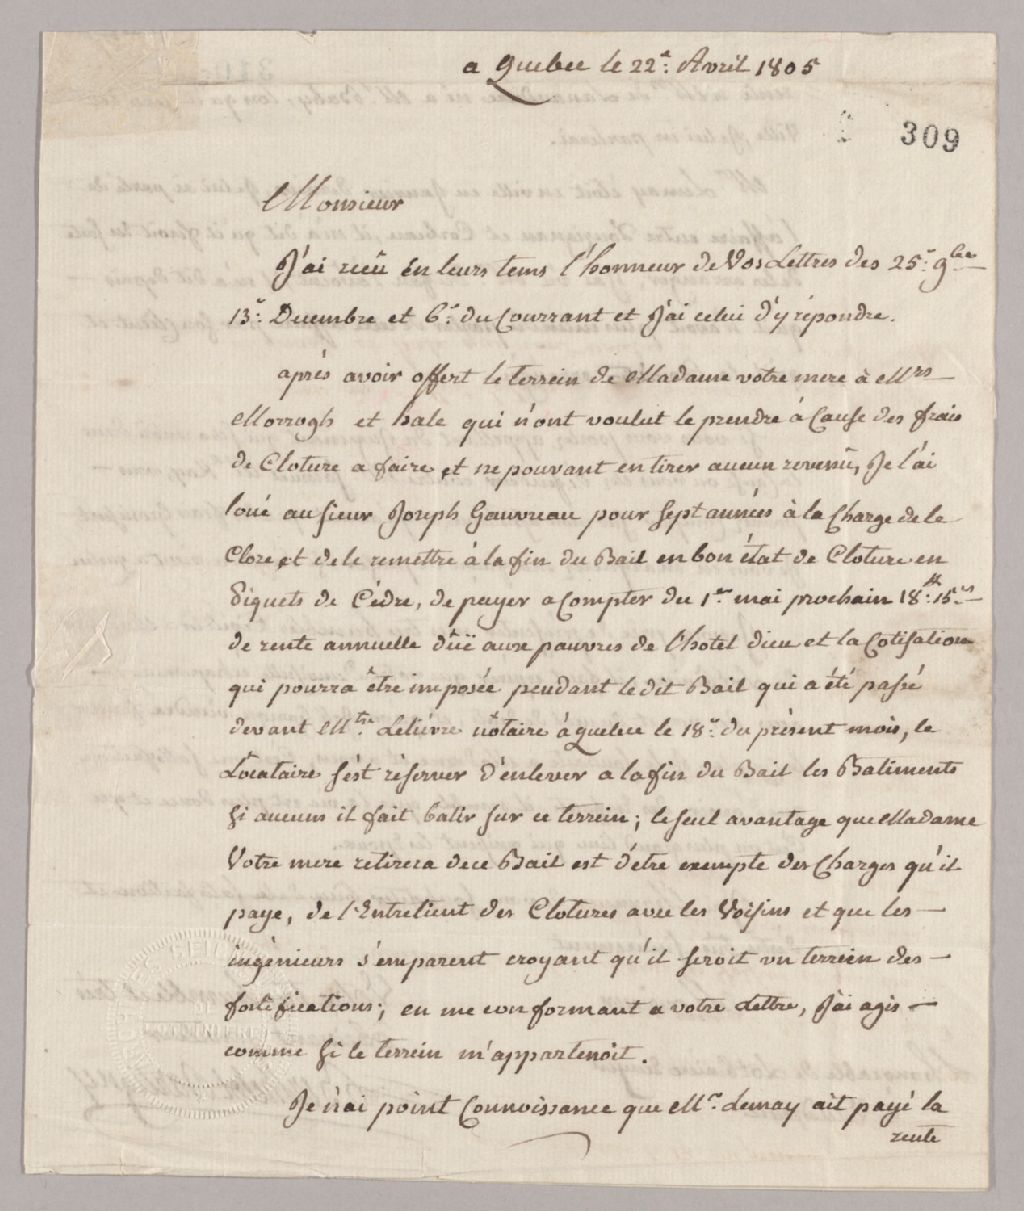 a Quebec le 22e. Avril 1805
309
Monsieur
J'ai recû en leurs tems l'honneur de Vos Lettres des 25e. 9bre
13e. Decembre et 6e. du Courrant et J'ai celui d'y répondre.
après avoir offert le terrein de Madame votre mere à Mrs
Morrogh et hale qui n'ont voulut le prendre à Cause des frais
de Cloture a faire, et ne pouvant en tirer aucun revenû, Je l'ai
loué au sieur Joseph Gauvreau pour sept années à la Charge de le
Clore, et de le remettre à la fin du Bail en bon état de Cloture en
Piquets de Cédre, de payer a Compter du 1er mai prochain 18.# 15.s
de rente annuelle dûë aux pauvres de l'hotel dieu et la Cotisation
qui pourra être imposée pendant le dit Bail qui a été passé
devant Mtre. Leliévre notaire à quebec le 18e. du présent mois, le
Locataire s'est réserver d'enlever a la fin du Bail les Batiments
si aucuns il fait batir sur ce terrein; le seul avantage que Madame
Votre mere retirera de ce Bail est d'être exempte des Charges qu'il
paye, de l'Entretient des Clotures avec les Voisins et que les
ingénieurs s'emparent croyant qu'il seroit un terrein des
fortifications; en me conformant a votre Lettre, J'ai agis
comme si le terrein m'appartenoit.
Je n'ai point Connoissance que Mr. Lemay ait payé la
rente